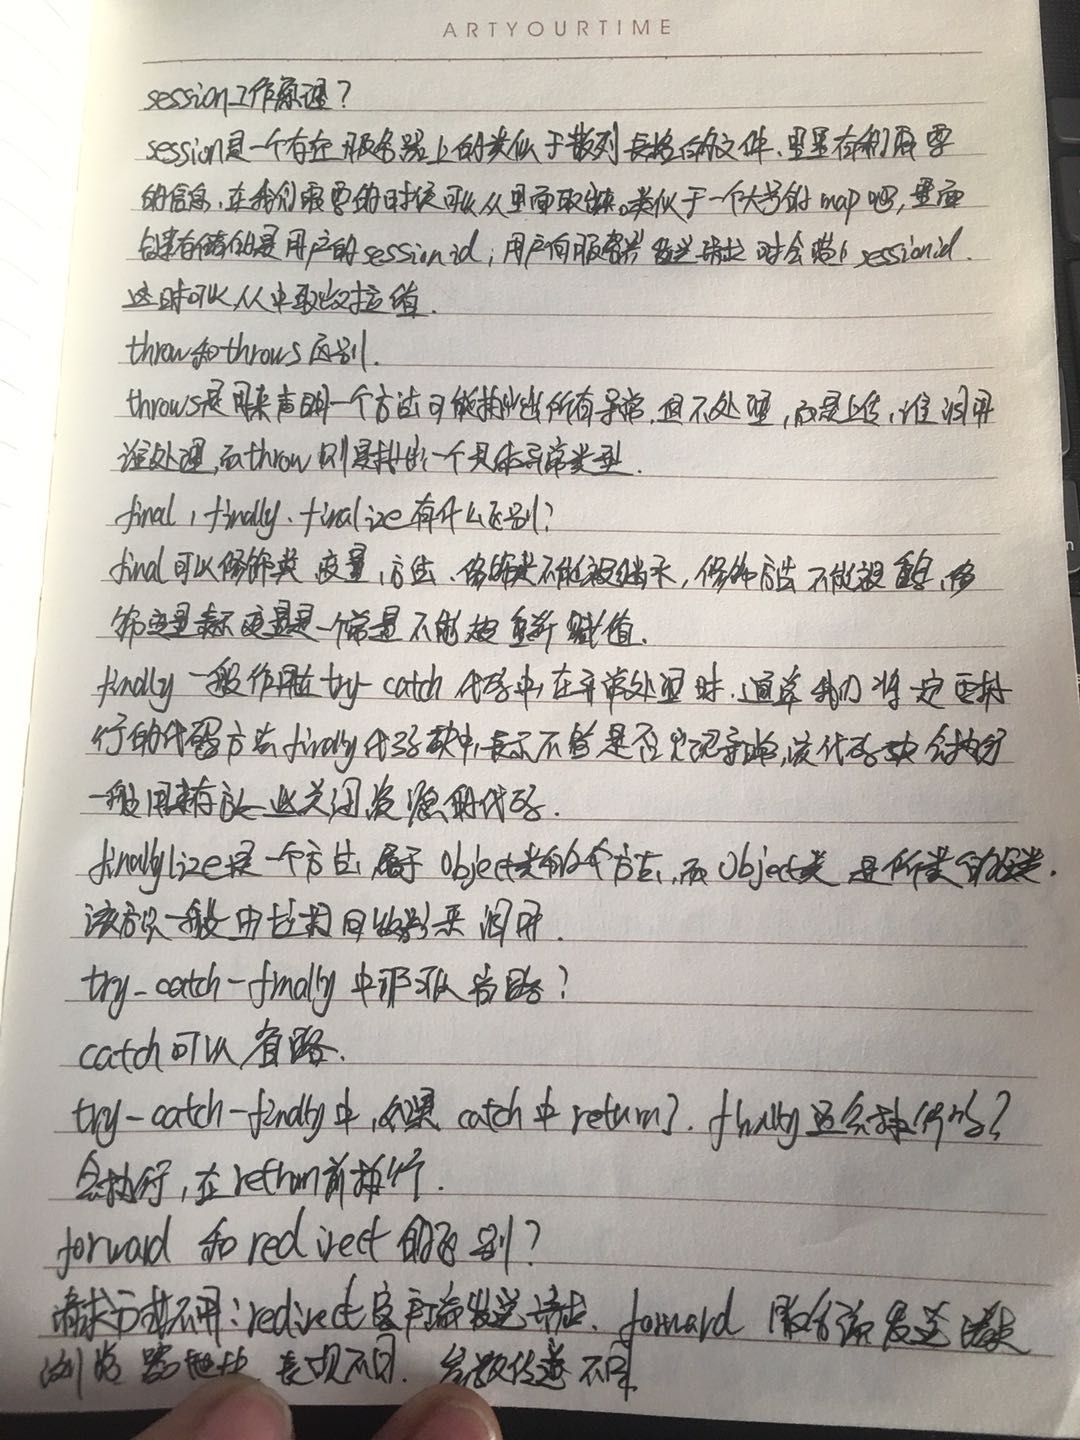 ARTYOURTIME
session工作原理？
session是一个存在服务器上的类似于散列表格的文件、里面存有我们需要
的信息、在我们需要的时候可以从里面取出来。类似于一个大号的map吧，里面
存储的是用户的sessionid；用户向服务器发送请求时会带上sessionid.
这时可以从中取出对应值.
throw和throws区别.
throws是用来声明一个方法可能抛出的所有异常.但不处理，而是上传，谁调用
谁处理，而throw则是抛出一个具体异常类型.
final，finally、finalize有什么区别？
final可以修饰类 变量，方法、修饰类不能被继承，修饰方法不能被重写、修
饰变量表示变量是一个常量不能被重新赋值.
finally一般作用在try-catch代码中，在异常处理时.通常我们将一定要执
行的代码方法finally代码块中，表示不管是否出现异常，该代码块会执行
一般用来存放一些关闭资源的代码.
finallylize是一个方法 属于Object类的一个方法，而Object类是所有类的父类.
该方法一般由垃圾回收器来调用.
try-catch-finally中那可以省略？
catch可以省略.
try-catch-finally中，如果catch中return了.finally还会执行吗？
会执行，在return前执行.
forward和redirect的区别？
请求方式不同：redirect客户端发送请求、forward服务端发送请求
浏览器地址 表现不同. 参数传递不同